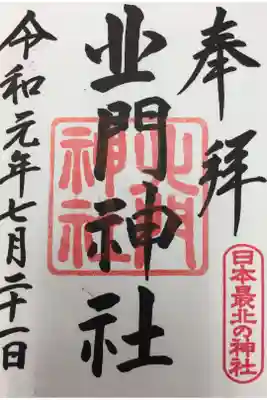 奉拝
日本最北の神社
北門神社
北門
神社
令和元年七月二十一日